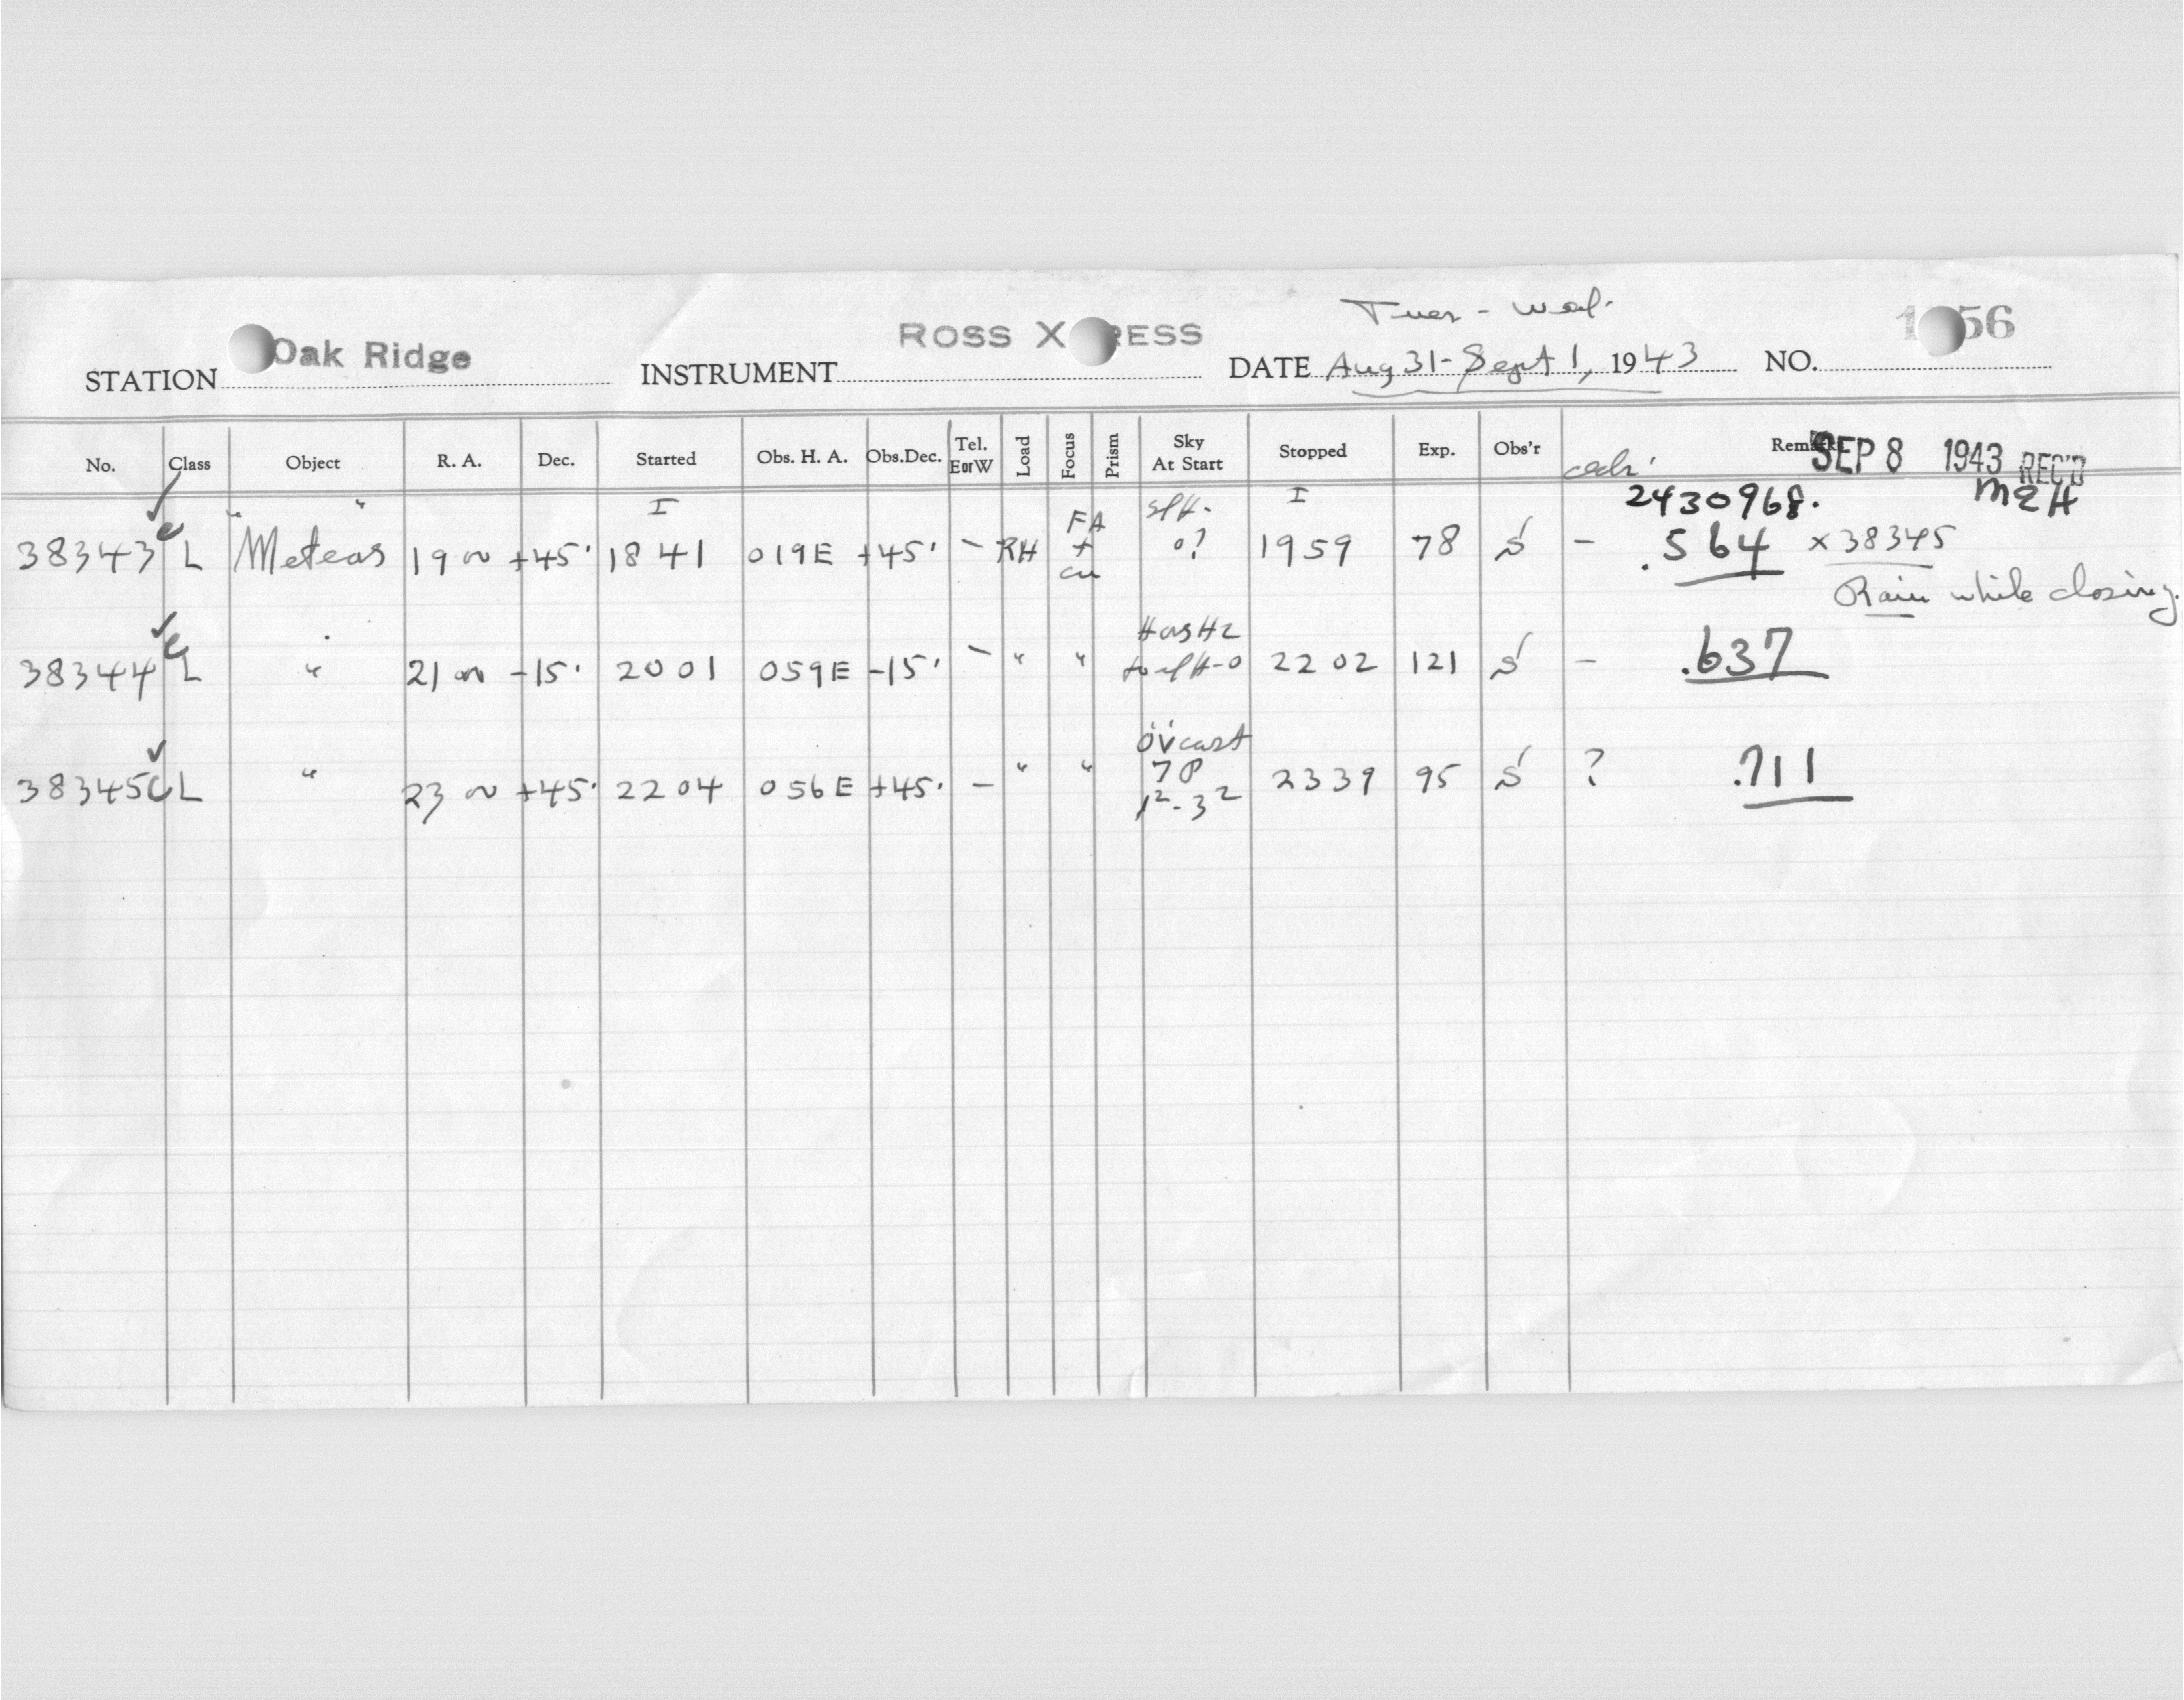 Tues - Wed.
STATION Oak Ridge INSTRUMENT ROSS X RESS DATE Aug 31 - Sept 1, 1943 NO. 1 56
No. Class Object R. A. Dec. Started Obs. H. A. Obs.Dec. Tel. E or W Load Focus Prism Sky At Start Stopped Exp. Obs'r Remarks SEP 8 1943 REC'D
I I 2430968. MEH
38343 L "Meteors" 19 +45° 1841 019E +45° - RH FA + 0? 1959 78 S - .564 x 38345
Rain while closing.
38344 L " 21 -15° 2001 059E -15° - " " 2202 121 S - .637
38345 L " 23 +45° 2204 056E +45° - " " ovcast 7P 1²-3² 2339 95 S ? .711